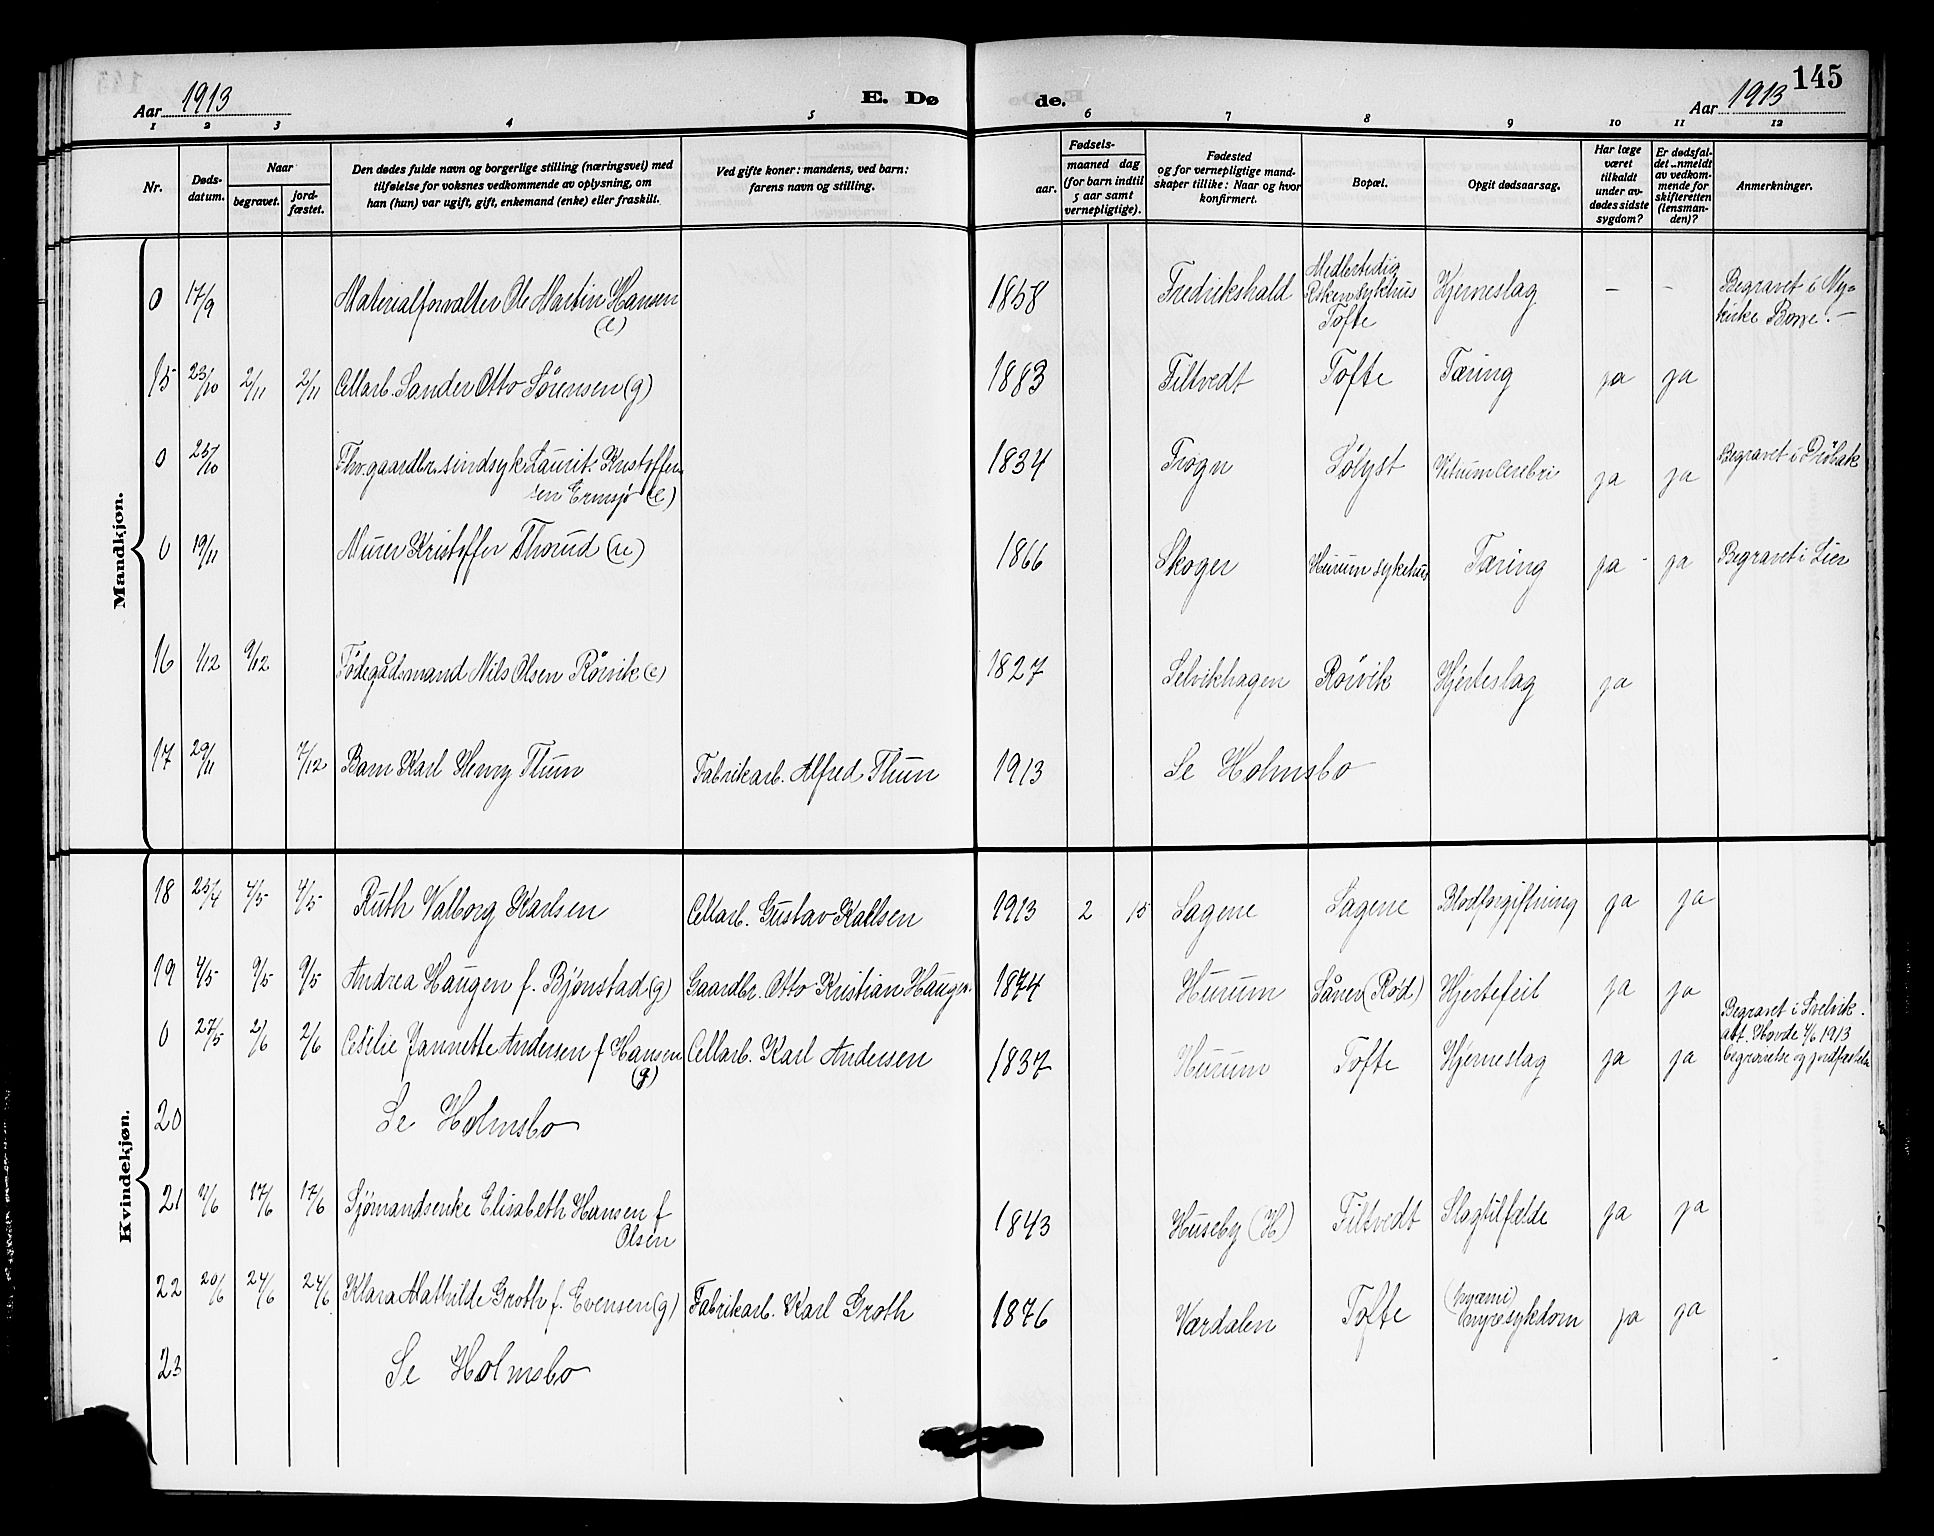 Aar 1913
E. Dø
de.
Aar 1913
145
1 2 3 4 5 6 7 8 9 10 11 12
Nr.
Døds-
datum.
Naar
begravet.
jord-
fæstet.
Den dødes fulde navn og borgerlige stilling (næringsvei) med
tilføielse for voksnes vedkommende av oplysning, om
han (hun) var ugift, gift, enkemand (enke) eller fraskilt.
Ved gifte koner: mandens, ved barn:
farens navn og stilling.
Fødsels-
aar.
maaned dag
(for barn indtil
5 aar samt
vernepligtige).
Fødested
og for vernepligtige mand-
skaper tillike: Naar og hvor
konfirmert.
Bopæl.
Opgit dødsaarsag.
Har læge
været
tilkaldt
under av-
dødes sidste
sygdom?
Er dødsfal-
det anmeldt
av vedkom-
mende for
skifteretten
(lensman-
den)?
Anmerkninger.
Mandkjøn.
0 17/9 Materialforvalter Ole Martin Hansen
(e)
1858 Fredrikshald
Medlertidig
Riken sykhus
Tofte
Hjerneslag – –
Begravet i Ny-
kirke Borre. –
15 23/10 2/11 2/11 Cellarb. Sander Otto Sørensen (g) 1883 Filtvedt Tofte Tæring ja ja
0 25/10 Fhv. gaardbr. sindsyk Laurits Kristoffer
sen Ermsjø (e)
1834 Frogn Sølyst Vitium Cerebri ja ja Begravet i Drøbak
0 19/11 Murer Kristoffer Thorud (u) 1866 Skoger Hurum sykehus Tæring ja - ja Begravet i Lier
16 1/12 9/12 Födegådsmand Nils Olsen Röivik (e) 1827 Selvikhagen Röivik Hjerteslag ja
17 29/11 7/12 Barn Karl Henry Thun Fabrikarb. Alfred Thun 1913 Se Holmsbo
Kvindekjøn.
18 23/4 4/5 4/5 Ruth Valborg Karlsen Cellarb. Gustav Karlsen 1913 2 15 Sagene Sagene Blodforgiftning ja ja
19 4/5 9/5 9/5 Andrea Haugen f. Bjønstad (g) Gaardbr. Otto Kristian Haugen. 1874 Hurum Såner (Rød) Hjertefeil ja ja
0 27/5 2/6 2/6 Cesilie Jannette Andersen f Hansen
(g)
Cellarb. Karl Andersen 1837 Hurum Tofte Hjerneslag ja ja
Begravet i Svelvik.
att. Hovde 4/6 1913
begravelse og jordfæstelse
20 Se Holmsbo
21 17/6 17/6 Sjømandsenke Elisabeth Hansen f
Olsen
1843 Huseby (H) Filtvedt Slagtilfælde ja ja
22 20/6 24/6 24/6 Klara Mathilde Groth f. Evensen (g) Fabrikarb. Karl Groth 1876 Værdalen Tofte
nyresykdom ja ja
23 Se Holmsbo